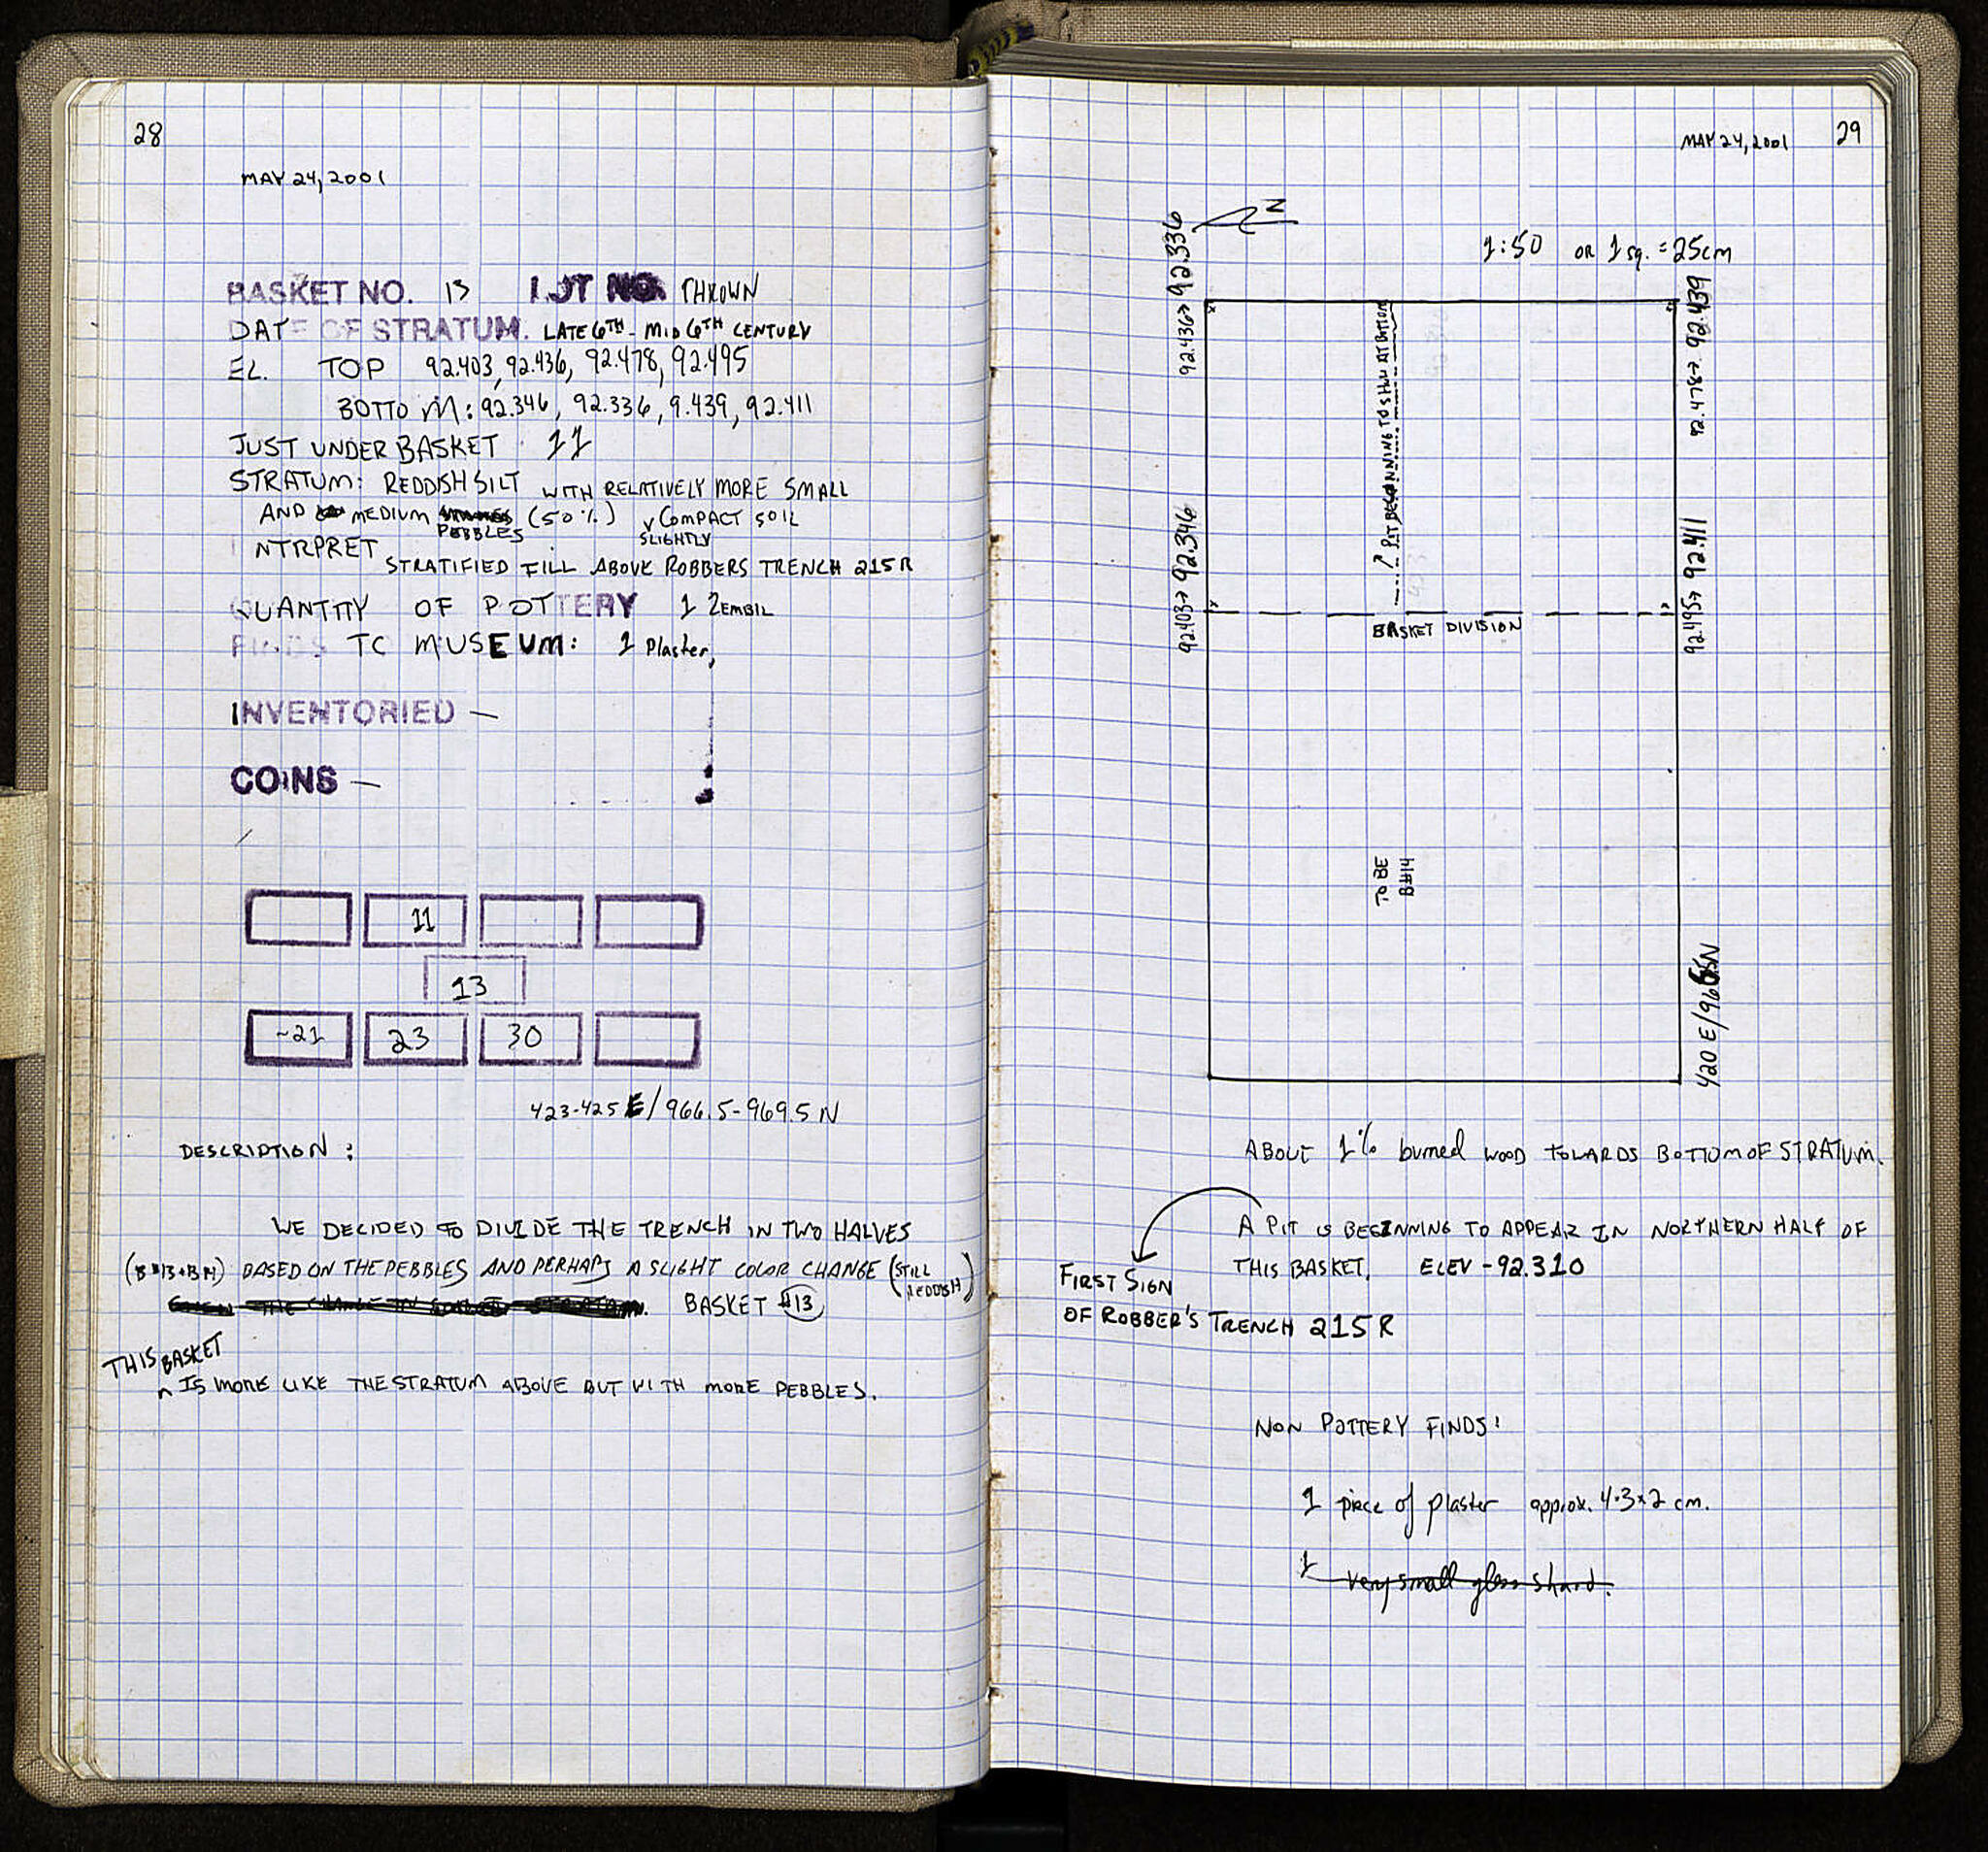 28
MAY 24, 2001
BASKET NO. 13 LOT NO. THROWN
DATE OF STRATUM. LATE 6TH - MID 6TH CENTURY
EL. TOP 92.403, 92.436, 92.478, 92.495
BOTTOM: 92.346, 92.336, 9.439, 92.411
JUST UNDER BASKET 11
STRATUM: REDDISH SILT WITH RELATIVELY MORE SMALL
AND MEDIUM PEBBLES (50%) SLIGHTLY COMPACT SOIL
NTRPRET STRATIFIED FILL ABOVE ROBBERS TRENCH 215R
QUANTITY OF POTTERY 1 ZEMBIL
FINDS TO MUSEUM: 1 Plaster,
INVENTORIED —
COINS —
11
13
~21 23 30
423-425 E/966.5-969.5 N
DESCRIPTION:
WE DECIDED TO DIVIDE THE TRENCH IN TWO HALVES
(B#13+B14) BASED ON THE PEBBLES AND PERHAPS A SLIGHT COLOR CHANGE (STILL REDDISH)
BASKET #13
THIS BASKET
IS MORE LIKE THE STRATUM ABOVE BUT WITH MORE PEBBLES.
MAY 24, 2001 29
N
1:50 OR 1 sq. = 25cm
92.436→92.336
92.478→92.439
PIT BEGINNING TO SHOW AT BOTTOM
92.403→92.346
92.495→92.411
BASKET DIVISION
TO BE
B#14
420 E/965N
ABOUT 1% burned WOOD TOWARDS BOTTOM OF STRATUM.
A PIT IS BEGINNING TO APPEAR IN NORTHERN HALF OF
THIS BASKET. ELEV - 92.310
FIRST SIGN
OF ROBBER'S TRENCH 215R
NON POTTERY FINDS:
1 piece of plaster approx. 4·3×2 cm.
1 very small glass shard.